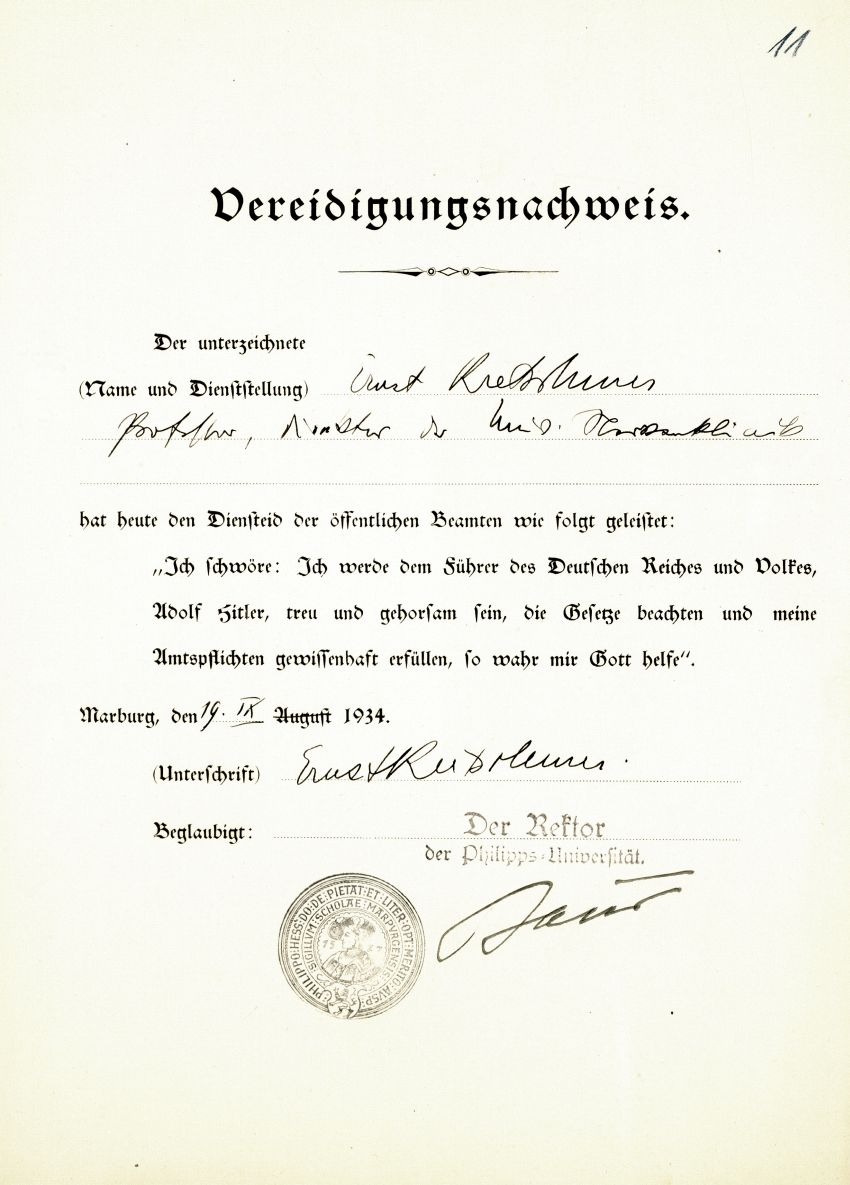 11
Vereidigungsnachweis.
Der unterzeichnete
(Name und Dienststellung) Ernst Kretschmer
Professor, Direktor der Univ. Nervenklinik
hat heute den Diensteid der öffentlichen Beamten wie folgt geleistet:
„Ich schwöre: Ich werde dem Führer des Deutschen Reiches und Volkes,
Adolf Hitler, treu und gehorsam sein, die Gesetze beachten und meine
Amtspflichten gewissenhaft erfüllen, so wahr mir Gott helfe“.
Marburg, den 19. IX August 1934.
(Unterschrift) Ernst Kretschmer.
Beglaubigt: Der Rektor
der Philipps-Universität.
PHILIPPO·HESS·DO·DE·PIETAT·ET·LITER·OPT·MERITO·AVSP·
SIGILLVM·SCHOLAE·MARPVRGENSIS
15 27